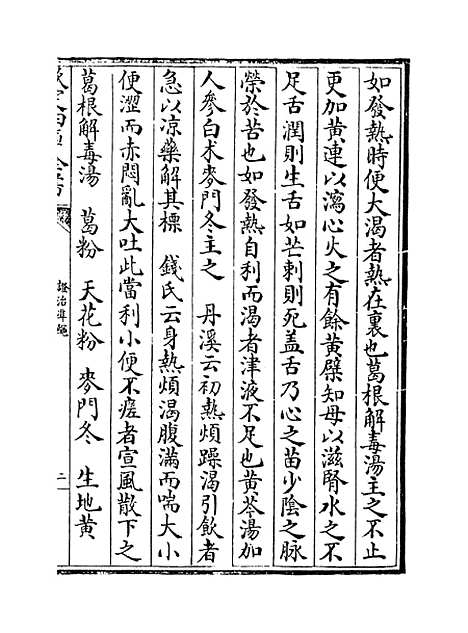 如發熱時便大渴者熱在裏也葛根解毒湯主之不止
更加黃連以瀉心火之有餘黃蘗知母以滋腎水之不
足舌潤則生舌如芒刺則死盖舌乃心之苗少陰之脉
榮於苦也如發熱自利而渴者津液不足也黄芩湯加
人參白术麥門冬主之　丹溪云初熱煩躁渴引飲者
急以凉藥解其標　錢氏云身熱煩渴腹滿而喘大小
便澀而赤悶亂大吐此當利小便不瘥者宣風散下之
葛根解毒湯　葛粉　天花粉　麥門冬　生地黄
欽定四庫全書
證治準繩